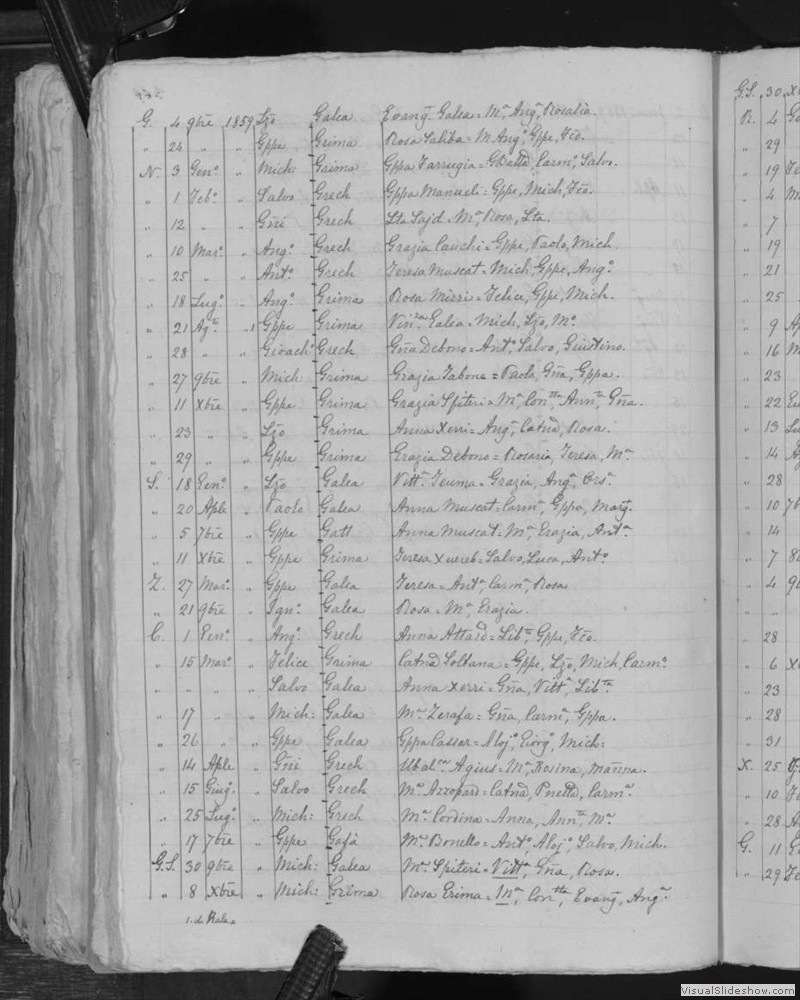 G. 4 9bre 1859 Lzo Galea Evang. Galea = Ma, Anga, Rosalia.
" 24 " " Gppe Grima Rosa Saliba = M. Ango, Gppe, Fco.
N. 3 Geno " Mich: Grima Gppa Farrugia = GBatta, Carmo, Salvo.
" 1 Febo " Salvo Grech Gppa Manueli = Gppe, Mich, Fco.
" 12 " " Gñi Grech Lta Sajd = Ma, Rosa, Lta.
" 10 Maro " Ango Grech Grazia Cauchi = Gppe, Paolo, Mich.
" 25 " " Anto Grech Teresa Muscat = Mich, Gppe, Ango.
" 18 Lugo " Ango Grima Rosa Mizzi = Felice, Gppe, Mich.
" 21 Ago " 1 Gppe Grima Galea = Mich, Lzo, Ma.
" 28 " " Gioacho Grech Gña Debono = Anto, Salvo, Giustino.
" 27 9bre " Mich: Grima Grazia Tabone = Paolo, Gña, Gppa.
" 11 Xbre " Gppe Grima Grazia Spiteri = Ma, Contta, Annta, Gña.
" 23 " " Lzo Grima Anna Xerri = Anga, Catna, Rosa.
" 29 " " Gppe Grima Grazia Debono = Rosaria, Teresa, Ma
S. 18 Geno " Lzo Galea Vitta Teuma = Grazia, Anga, Orsa.
" 20 Aple " Paolo Galea Anna Muscat = Carma, Gppa, Marg.
" 5 7bre " Gppe Gatt Anna Muscat = Ma, Grazia, Anta.
" 11 Xbre " Gppe Grima Teresa Xuereb = Salvo, Luca, Anto
Z. 27 Maro " Gppe Galea Teresa = Anta, Carma, Rosa
" 21 9bre " Igno Galea Rosa = Ma, Grazia.
C. 1 Geno " Ango Grech Anna Attard = Liba, Gppe, Fco.
" 15 Maro " Felice Grima Catna Soltana = Gppe, Lzo, Mich, Carmo.
" " " " Salvo Galea Anna Xerri = Gña, Vitta, Libta.
" 17 " " Mich: Galea Ma Zerafa = Gña, Carma, Gppa.
" 26 " " Gppe Galea Gppa Cassar = Alojo, Giorgo, Mich:
" 14 Aple " Gñi Grech Ubalca Agius = Ma, Rosina, Mañna.
" 15 Giugo " Salvo Grech Ma Azzopard = Catna, Carma.
" 25 Lugo " Mich: Grech Ma Cordina = Anna, Annta, Ma
" 17 7bre " Gppe Gafà Ma Bonello = Anto, Alojo, Salvo, Mich.
G.S. 30 9bre " Mich: Galea Ma Spiteri = Vitta, Gña, Rosa.
" 8 Xbre " Mich: Grima Rosa Grima = Ma, Contta, Evang, Anga
1. da
G.S. 30 X
R. 4
" 29
" 19
" 4
" 7
" 19
" 21
" 25
" 9
" 16
" 23
" 22
" 13
" 14
" 28
" 10
" 14
" 7
" 4
" "
" 28
" 6
" 23
" 28
" 31
X. 25
" 10
" 28
G. 11
" 29
VisualSlideshow.com